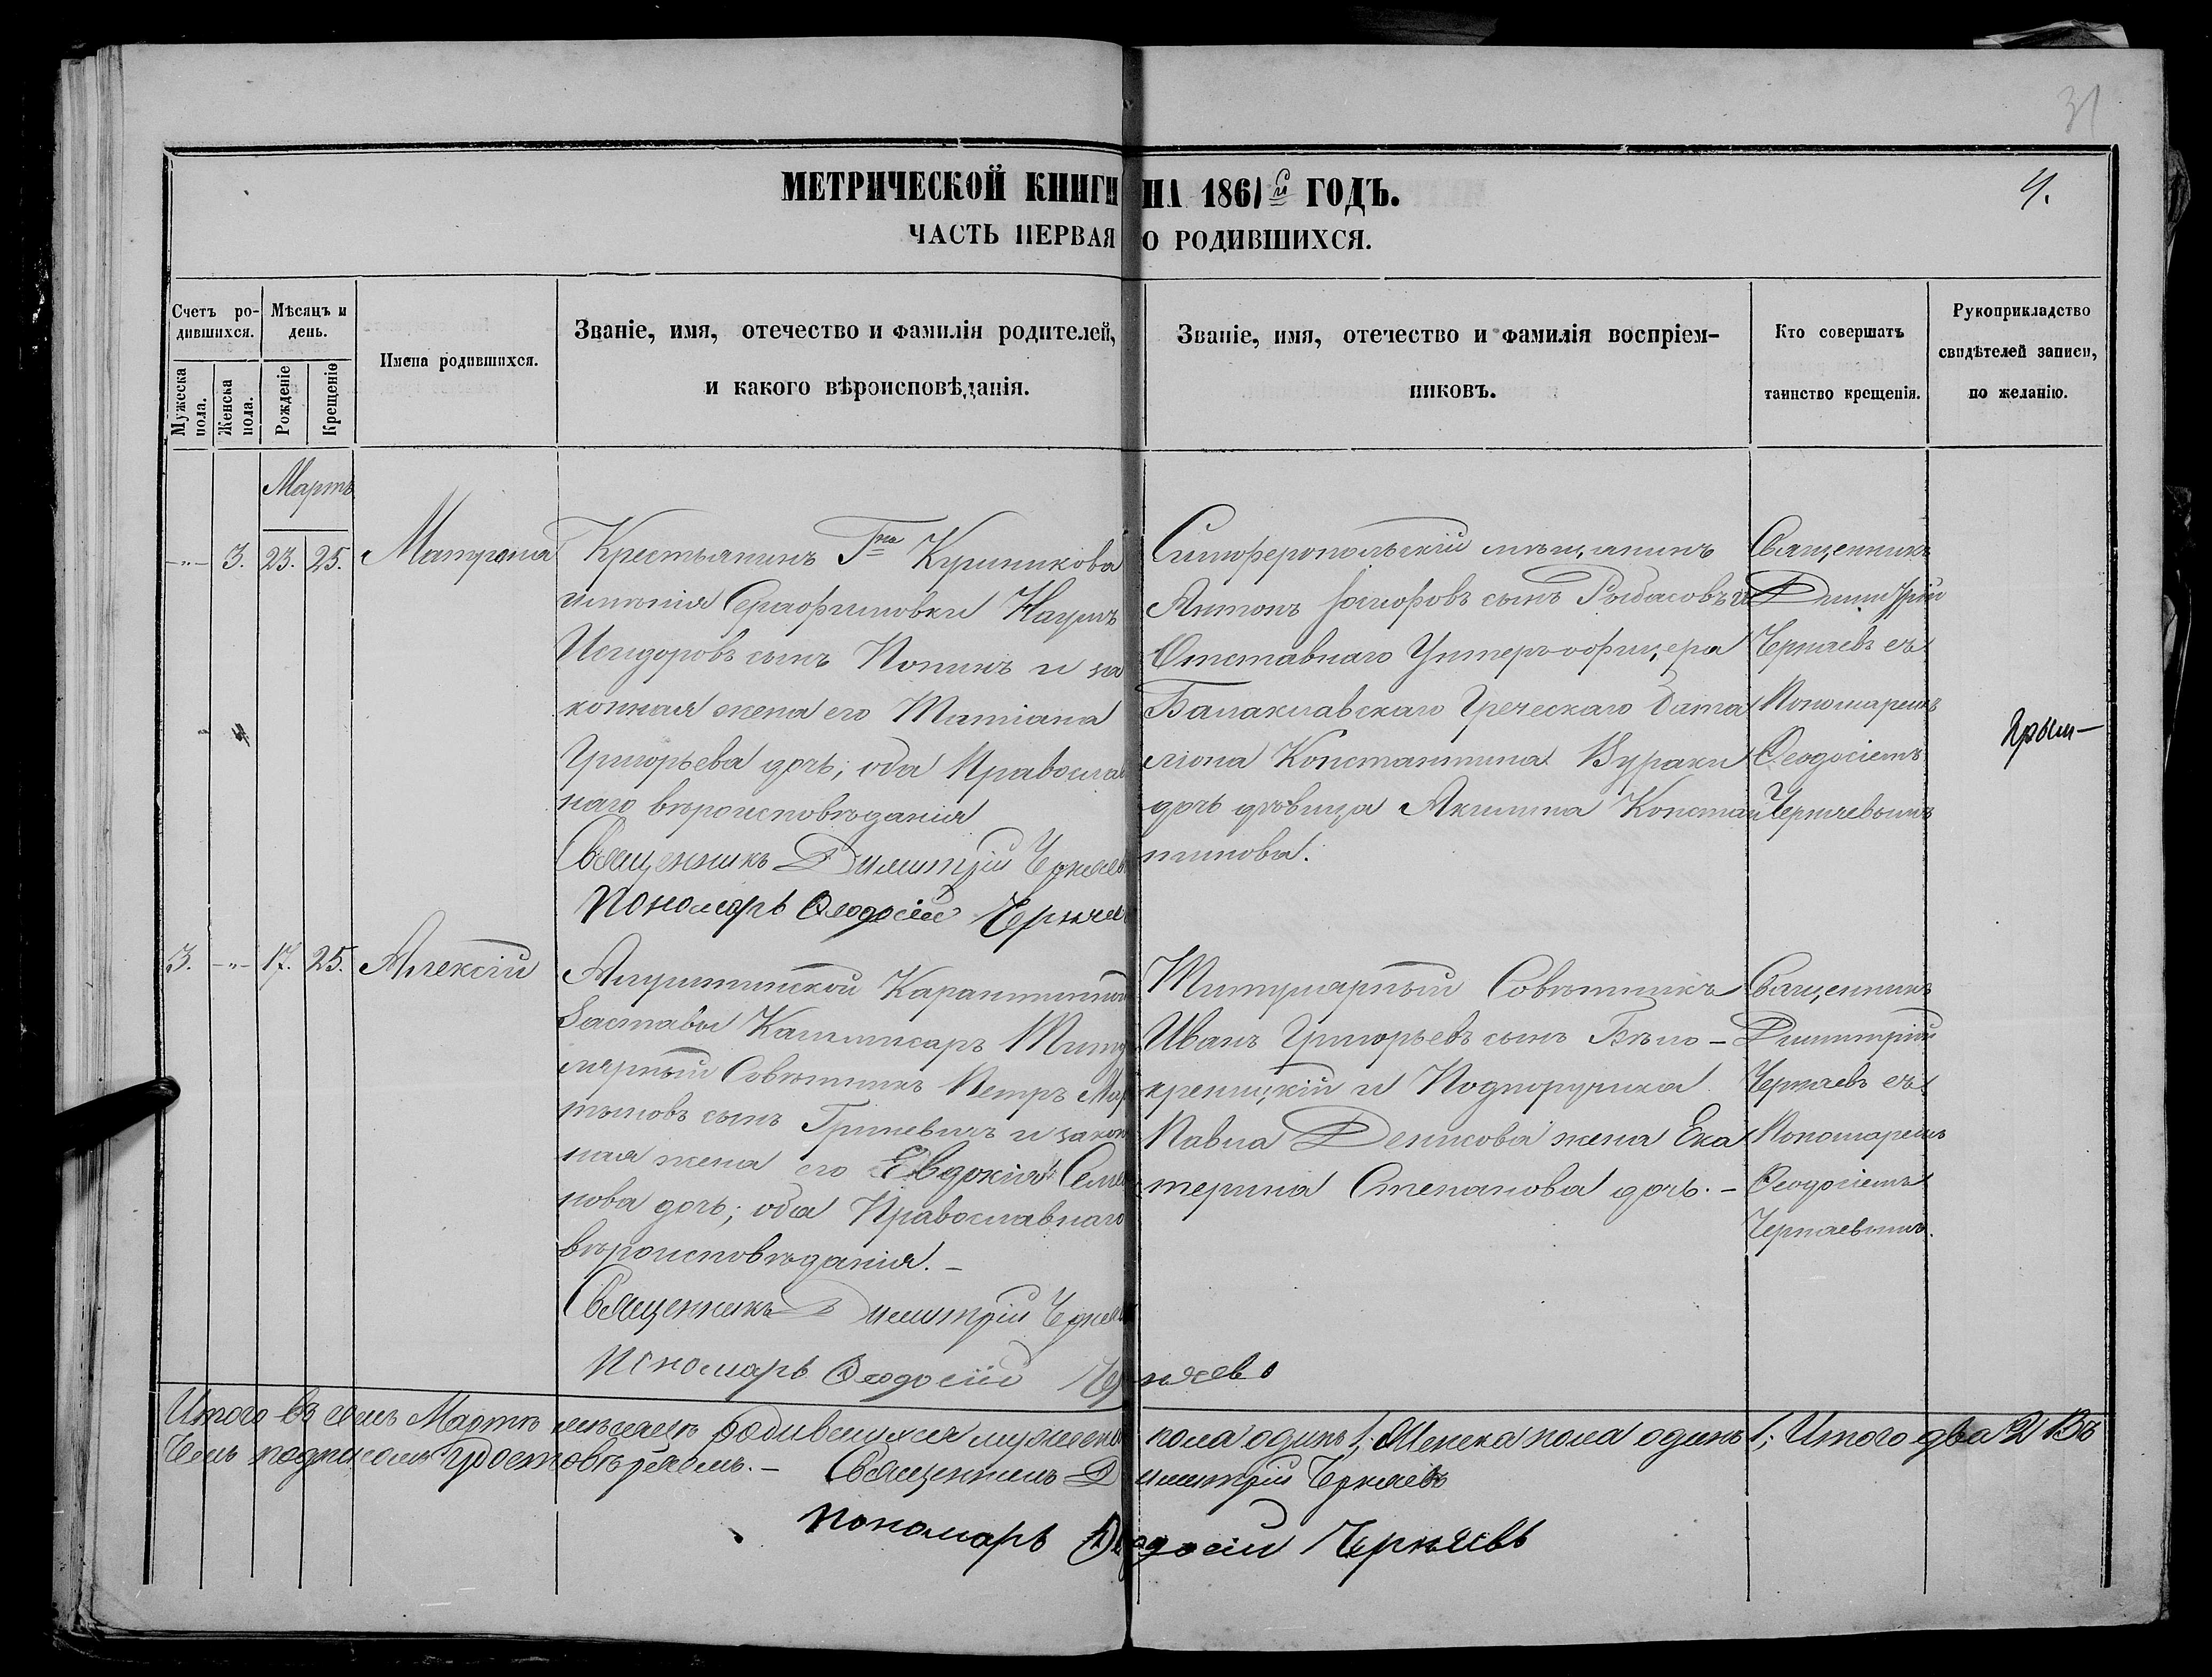 31
МЕТРИЧЕСКОЙ КНИГИ НА 1861й ГОДЪ.
4.
ЧАСТЬ ПЕРВАЯ О РОДИВШИХСЯ.
Счетъ ро-
дившихся.
Мужеска пола.
Женска пола.
Мѣсяцъ и
день.
Рожденіе
Крещеніе
Имена родившихся.
Званіе, имя, отечество и фамилія родителей,
и какого вѣроисповѣданія.
Званіе, имя, отечество и фамилія воспріем-
никовъ.
Кто совершать
таинство крещенія.
Рукоприкладство
свидѣтелей записи,
по желанію.
Мартъ
-"- 3. 23. 25. Матрона
Крестьянинъ Гна Кушникова
имѣнія Серафимовки Наумъ
Исидоровъ сынъ Попинъ и за
конная жена его Татіана
Григорьева дочь; оба Православ
наго вѣроисповѣданія
Священникъ Димитрій Черняев
Пономарь Ѳеодосій Черняев
Симферопольскій мѣщанинъ
Антонъ Іосифовъ сынъ Рыбасовъ и
Отставнаго Унтеръ-офицера
Балаклавскаго Греческаго Бата
ліона Константина Вураки
дочь дѣвица Акилина Констан
тинова.
Священникъ
Димитрій
Черняевъ съ
Пономаремъ
Ѳеодосіемъ
Черняевымъ
3. -"- 17. 25. Алексій
Алуштинской Карантинной
Заставы Коммисаръ Титу
лярный Совѣтникъ Петръ Мар
тыновъ сынъ Гриневичъ и закон
ная жена его Евдокія Семе
нова дочь; оба Православнаго
вѣроисповѣданія. –
Священникъ Димитрій Черняев
Пономарь Ѳеодосій Черняевъ
Титулярный Совѣтникъ
Иванъ Григорьевъ сынъ Бѣло-
креницкій и Подпоручика
Павла Деникова жена Ека
терина Степанова дочь. –
Священникъ
Димитрій
Черняевъ съ
Пономаремъ
Ѳеодосіемъ
Черняевымъ.
Итого въ семъ Мартѣ мѣсяцѣ родившихся мужеска пола одинъ 1; Женска пола одинъ 1; Итого два 2 Въ
чемъ подписомъ удостовѣряемъ. – Священникъ Димитрій Черняевъ
Пономарь Ѳеодосій Черняевъ